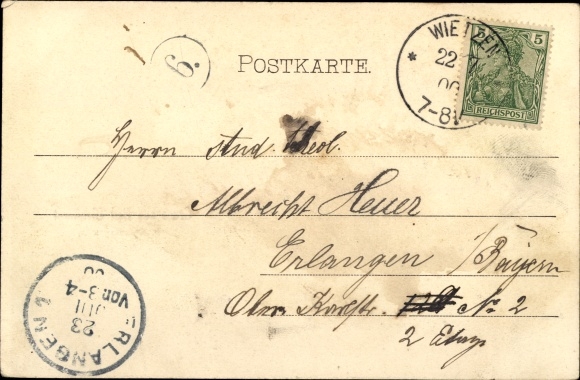 6.
POSTKARTE.
WIETZEN
22
00
7-8V
5
REICHSPOST
Herrn stud. theol.
Albrecht Heuer
Erlangen / Bayern
Obere Karlstr. No 2
2 Etage
ERLANGEN 2
23
JUL
Vor. 3-4
00